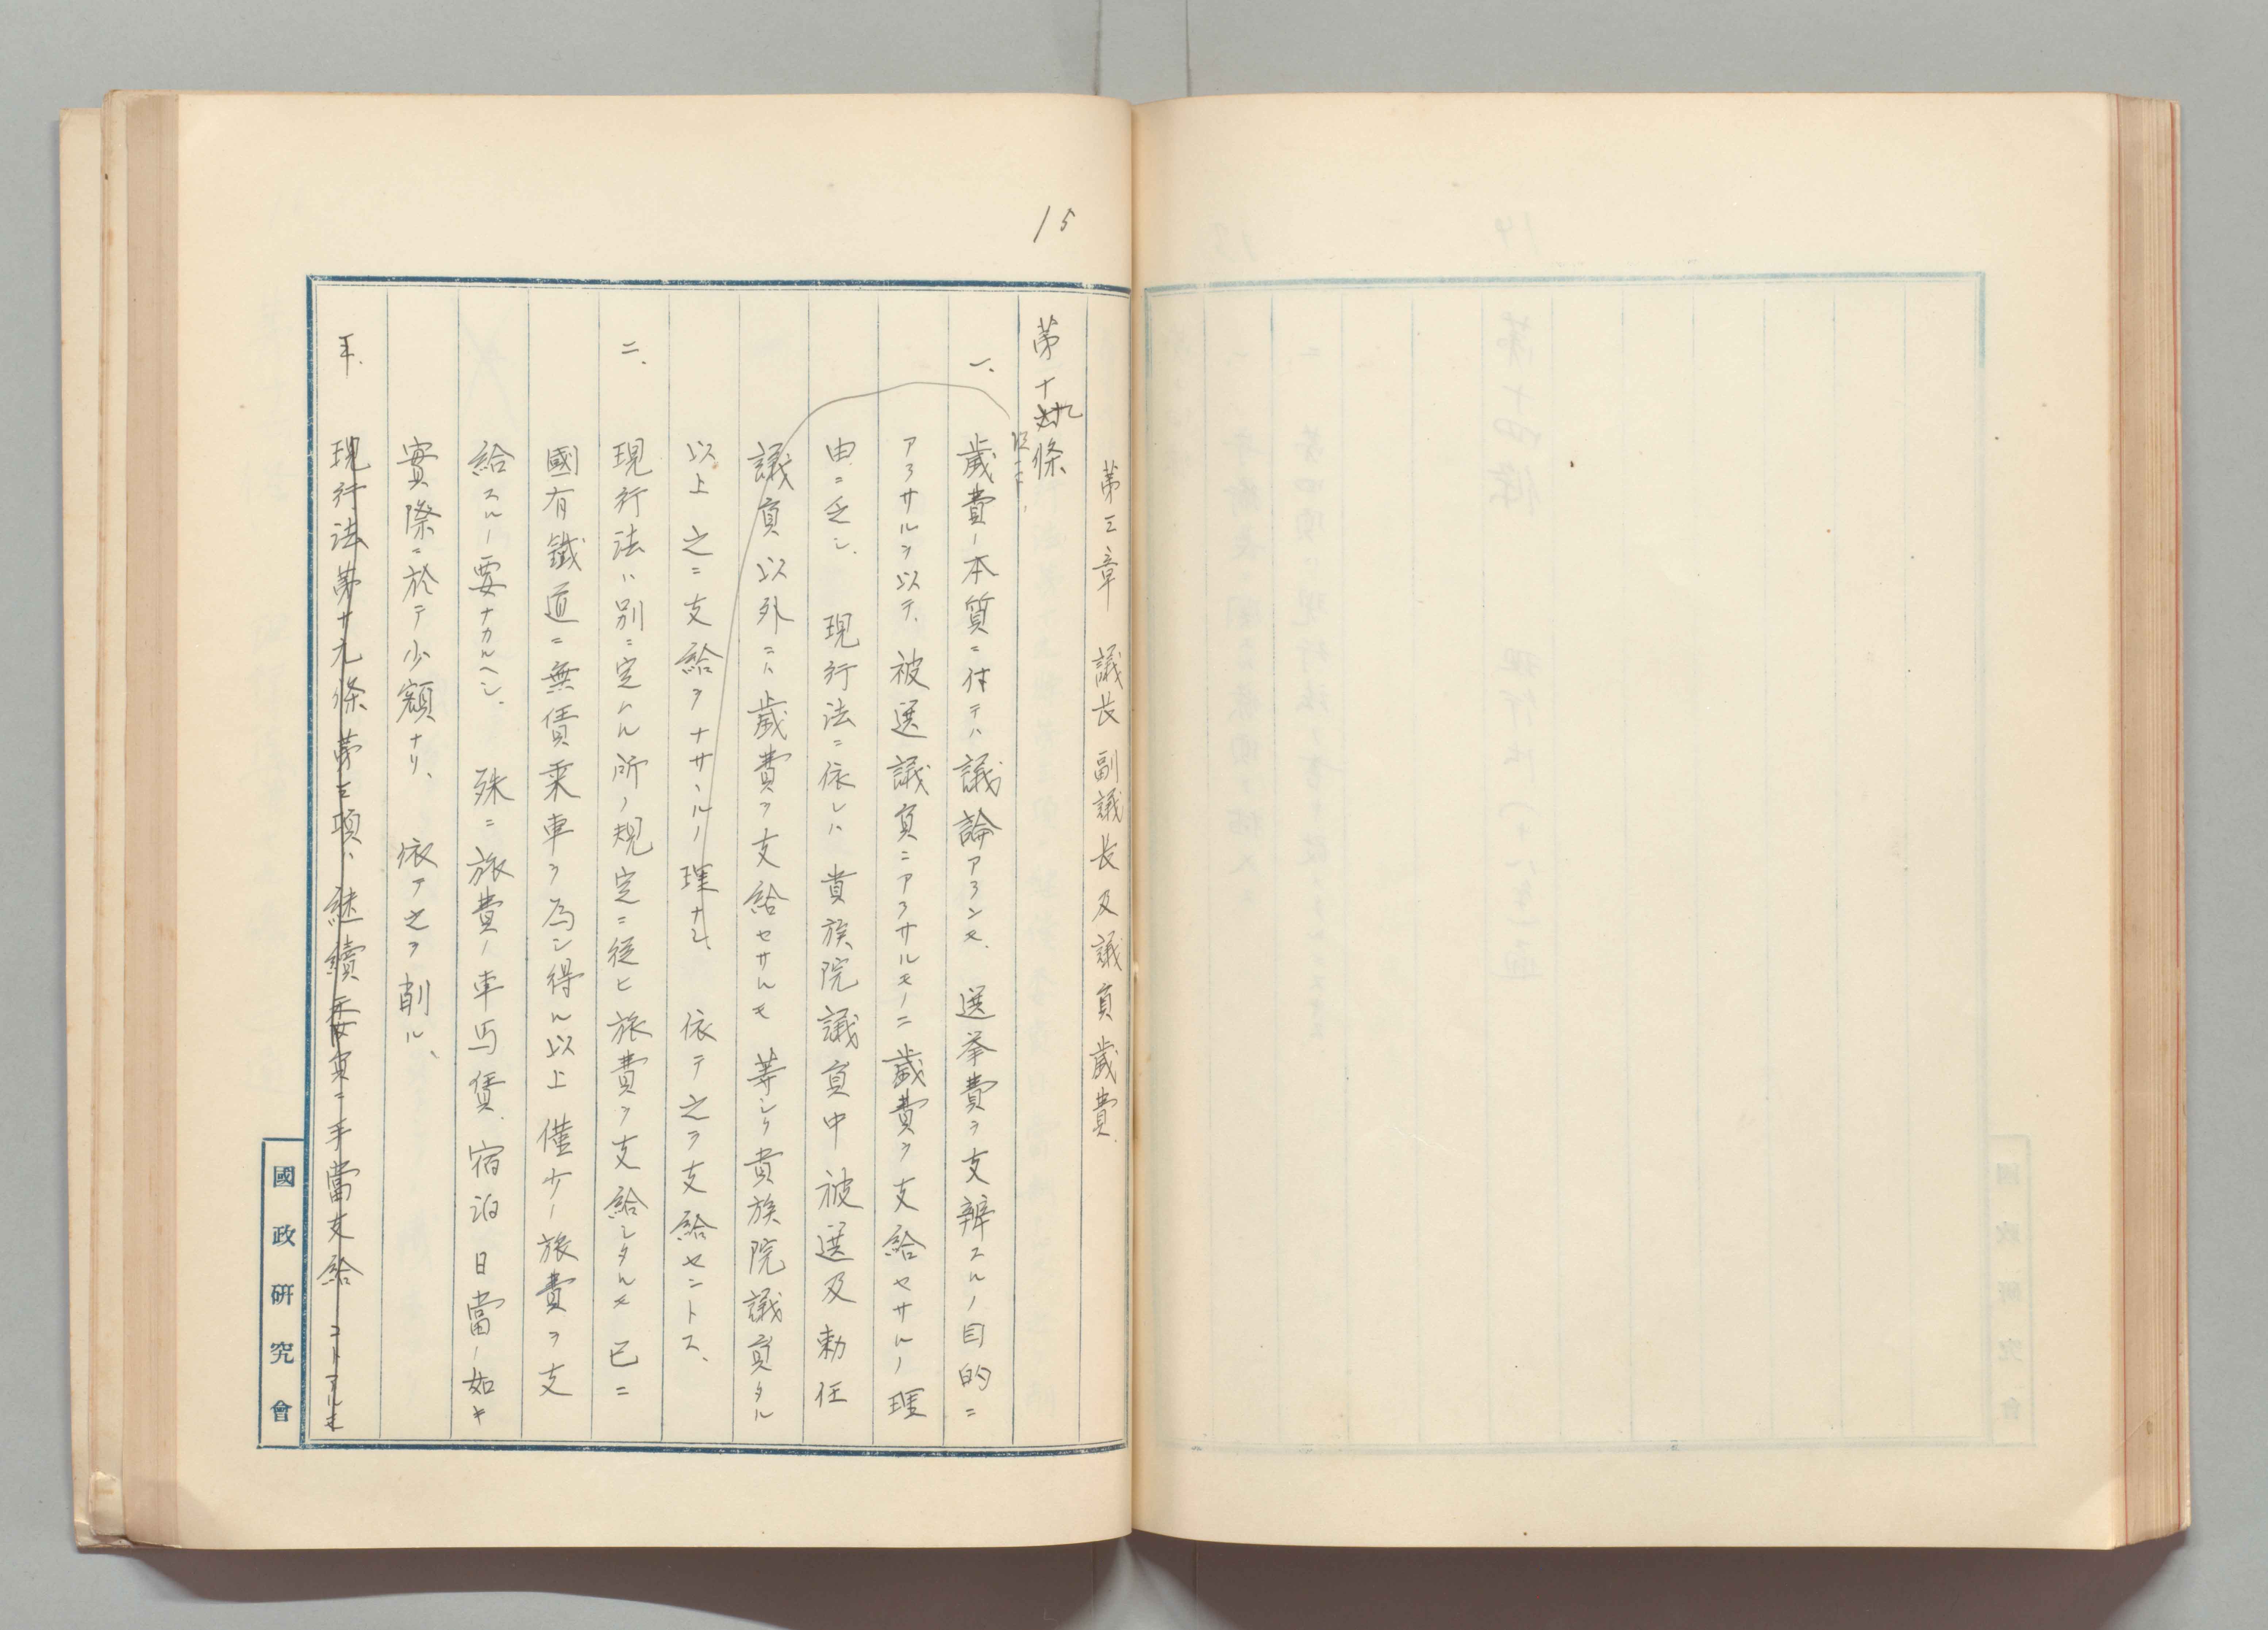 15
第三章 議長副議長及議員歳費
第十九條
一、歳費ノ本質ニ付テハ議論アランモ、選挙費ヲ支辨スルノ目的ニ
アラサルヲ以テ、被選議員ニアラサルモノニ歳費ヲ支給セサルノ理
由ニ乏シ、現行法ニ依レハ貴族院議員中被選及勅任
議員以外ニハ歳費ヲ支給セサルモ等シク貴族院議員タル
以上之ニ支給ヲナサヽルノ理ナシ、依テ之ヲ支給セントス、
二、現行法ハ別ニ定ムル所ノ規定ニ従ヒ旅費ヲ支給シタルモ已ニ
國有鐵道ニ無賃乗車ヲ為シ得ル以上僅少ノ旅費ヲ支
給スルノ要ナカルヘシ、殊ニ旅費ノ車馬賃、宿泊日當ノ如キ
實際ニ於テ少額ナリ、依テ之ヲ削ル、
現行法第十九條第三項ハ継續委員ニ手當支給コトアルモ
國政研究會